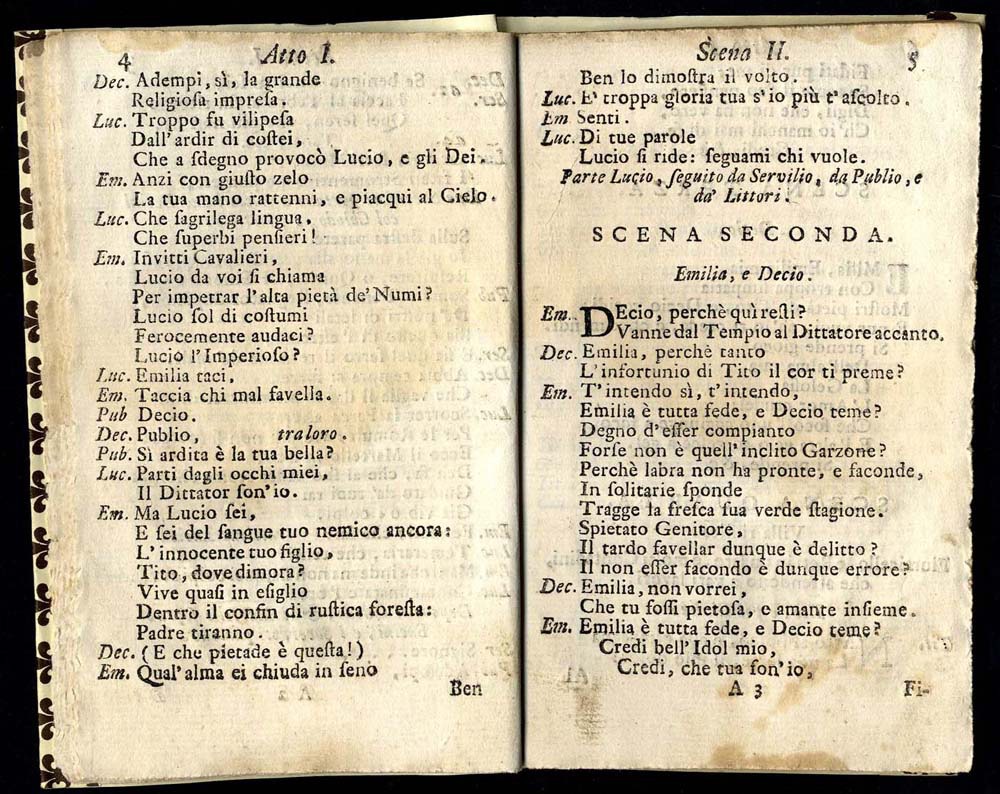 4 Atto I.
Dec. Adempì, sì, la grande
Religioſa impreſa.
Luc. Troppo fu vilipeſa
Dall' ardir di coſtei,
Che a ſdegno provocò Lucio, e gli Dei.
Em. Anzi con giuſto zelo
La tua mano rattenni, e piacqui al Cielo.
Luc. Che ſagrilega lingua.
Che ſuperbi penſieri!
Em. Invitti Cavalieri,
Lucio da voi ſi chiama
Per impetrar l'alta pietà de' Numi?
Lucio ſol di coſtumi
Ferocemente audaci?
Lucio l'Imperioſo?
Luc. Emilia taci,
Em. Taccia chi mal favella.
Pub Decio.
Dec. Publio, traloro.
Pub. Sì ardita è la tua bella?
Luc. Parti dagli occhi miei,
Il Dittator ſon' io.
Em. Ma Lucio ſei,
E ſei del ſangue tuo nemico ancora:
L' innocente tuo figlio,
Tito, dove dimora?
Vive quaſi in eſiglio
Dentro il confin di ruſtica foreſta:
Padre tiranno.
Dec. (E che pietade è queſta!)
Em. Qual' alma ei chiuda in ſeno
Ben
Scena II. 5
Ben lo dimoſtra il volto.
Luc. E' troppa gloria tua s'io più t'aſcolto.
Em Senti.
Luc. Di tue parole
Lucio ſi ride: ſeguami chi vuole.
Parte Lucio, ſeguito da Servilio, da Publio, e
da' Littori.
SCENA SECONDA.
Emilia, e Decio.
Em. DEcio, perchè quì reſti?
Vanne dal Tempio al Dittatore accanto.
Dec. Emilia, perchè tanto
L'infortunio di Tito il cor ti preme?
Em. T'intendo sì, t'intendo,
Emilia è tutta fede, e Decio teme?
Degno d'eſſer compianto
Forſe non è quell' inclito Garzone?
Perchè labra non ha pronte, e faconde,
In ſolitarie ſponde
Tragge la freſca ſua verde ſtagione.
Spietato Genitore,
Il tardo favellar dunque è delitto?
Il non eſſer facondo è dunque errore?
Dec. Emilia, non vorrei,
Che tu foſſi pietoſa, e amante inſieme.
Em. Emilia è tutta fede, e Decio teme?
Credi bell' Idol mio,
Credi, che tua ſon' io,
A 3 Fi-